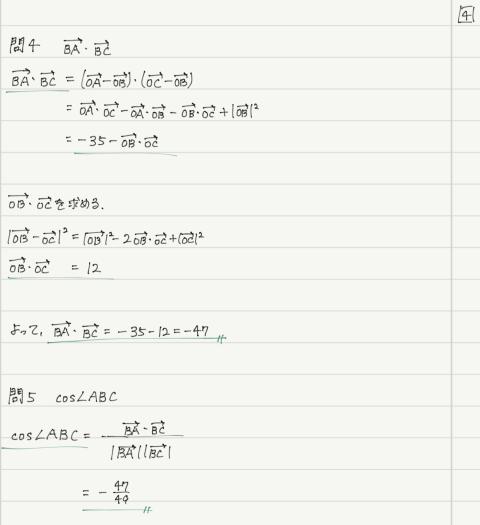 4
問4 BA→・BC→
BA→・BC→ = (OA→-OB→)・(OC→-OB→)
= OA→・OC→-OA→・OB→-OB→・OC→+|OB→|²
= -35-OB→・OC→
OB→・OC→を求める.
|OB→-OC→|²=|OB→|²-2OB→・OC→+|OC→|²
OB→・OC→ = 12
よって, BA→・BC→ = -35-12=-47
問5 cos∠ABC
cos∠ABC = BA→・BC→ / |BA→||BC→|
= - 47/49